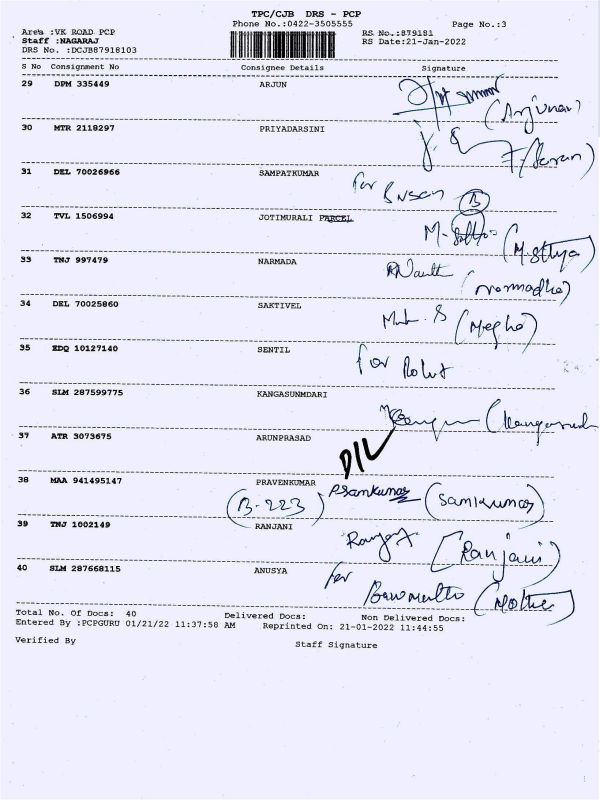 TPC/CJB DRS - PCP
Phone No.:0422-3505555
Page No.:3
Area :VK ROAD PCP
RS No.:879181
Staff :NAGARAJ
RS Date:21-Jan-2022
DRS No. :DCJB87918103
S No Consignment No Consignee Details Signature
29 DPM 335449 ARJUN
(Arjunan)
30 MTR 2118297 PRIYADARSINI
31 DEL 70026966 SAMPATKUMAR
for
32 TVL 1506994 JOTIMURALI PARCEL
(M.Sthya)
33 TNJ 997479 NARMADA
(Narmadha)
34 DEL 70025860 SAKTIVEL
(Megha)
35 EDQ 10127140 SENTIL
for
36 SLM 287599775 KANGASUNMDARI
37 ATR 3073675 ARUNPRASAD
D/L
38 MAA 941495147 PRAVENKUMAR
(B-223) (Samkumar)
39 TNJ 1002149 RANJANI
(Ranjani)
40 SLM 287668115 ANUSYA
for (Mother)
Total No. Of Docs: 40 Delivered Docs: Non Delivered Docs:
Entered By :PCPGURU 01/21/22 11:37:58 AM Reprinted On: 21-01-2022 11:44:55
Verified By Staff Signature